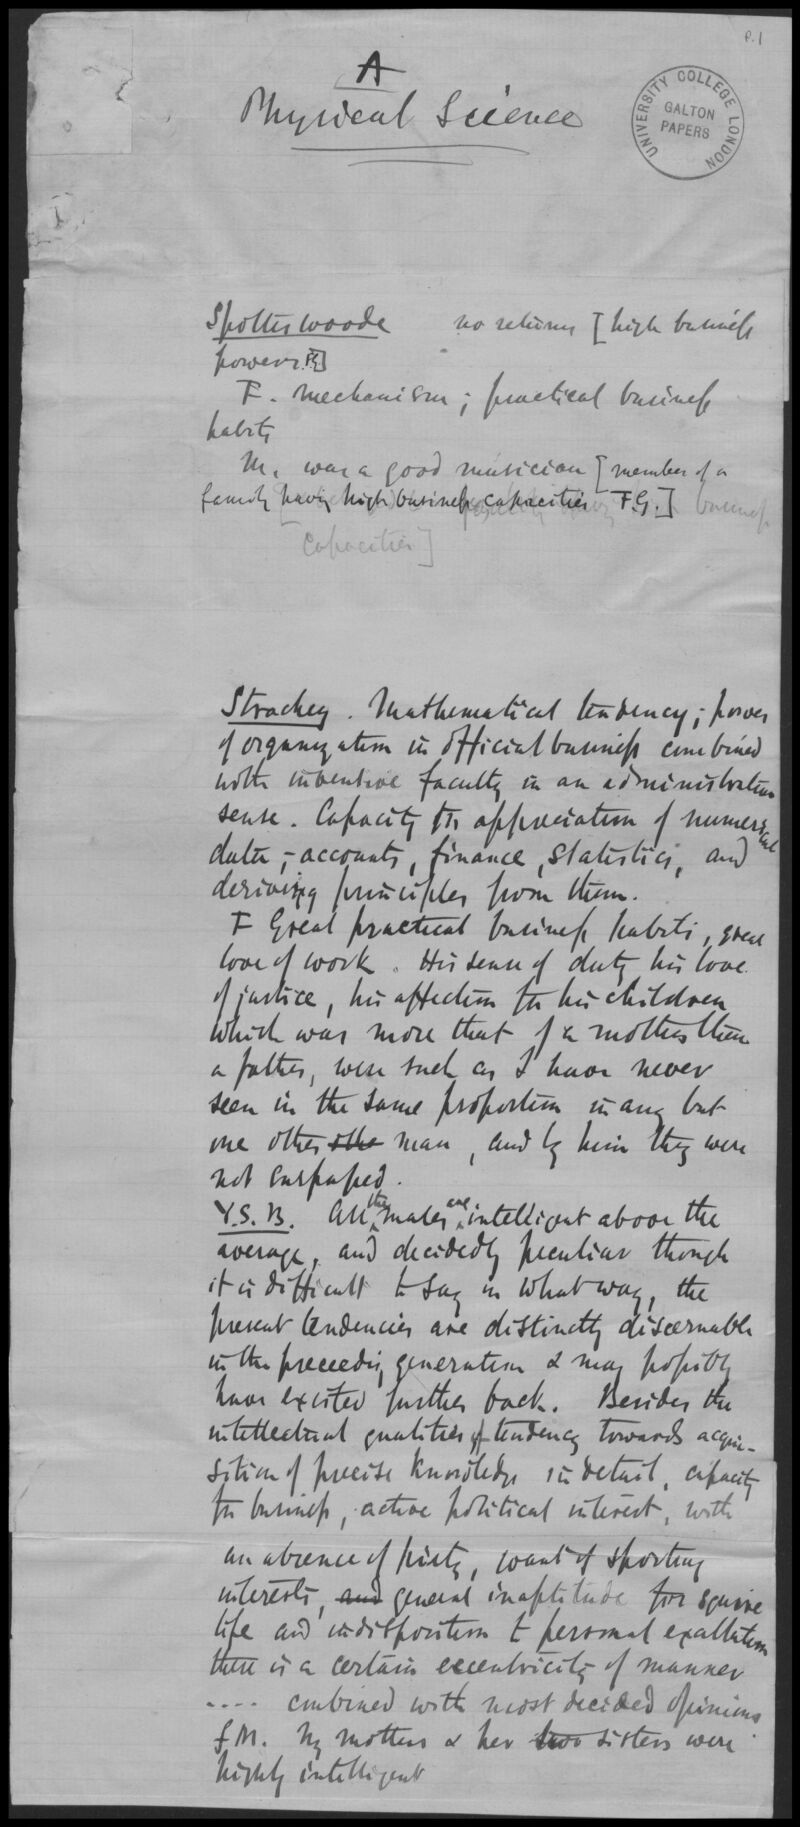 P.1
A
Physical Science
UNIVERSITY COLLEGE LONDON
GALTON
PAPERS
Spottiswoode no returns [high business
powers. FG]
F. mechanism; practical business
habits
M. was a good musician [member of a
family having high business capacities F.G.] business
capacities]
Strachey. Mathematical tendency; power
of organization in official business combined
with inventive faculty in an administrative
sense. Capacity for appreciation of numerical
data, - accounts, finance, statistics, and
deriving principles from them.
F Great practical business habits, great
love of work. His sense of duty his love
of justice, his affection for his children
which was more that of a mother than
a father, were such as I have never
seen in the same proportion in any but
one other othe man, and by him they were
not surpassed.
Y.S.B. All the males are intelligent above the
average, and decidedly peculiar though
it is difficult to say in what way, the
present tendencies are distinctly discernable
in the preceeding generation & may possibly
have existed further back. Besides the
intellectual qualities of tendency towards acqui-
sition of precise knowledge in detail, capacity
for business, active political interest, with
an absence of piety, want of sporting
interests, and general inaptitude for squire
life and indisposition to personal exaltation
there is a certain eccentricity of manner
.... combined with most decided opinions
f M. My mother & her two sisters were
highly intelligent